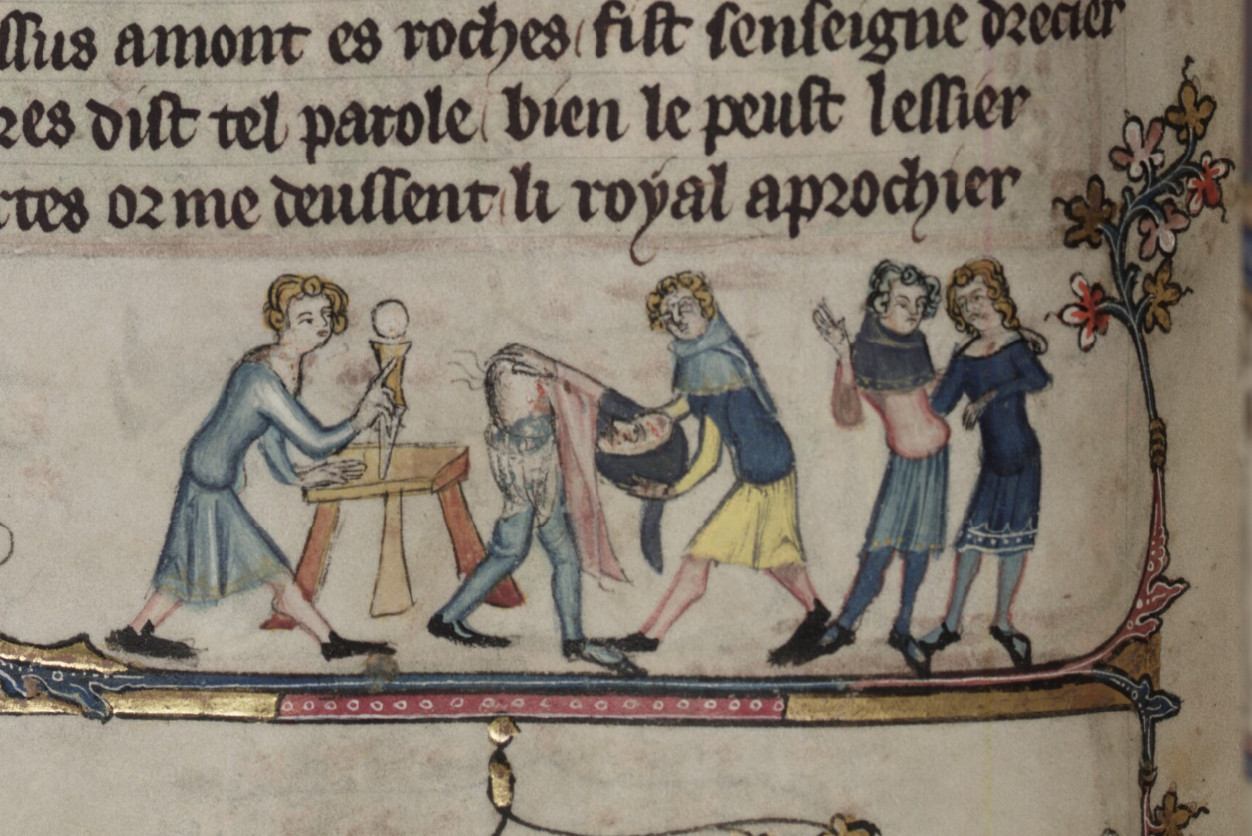 ssus amont es roches fist senseigne drecier
res dist tel parole bien le peust lessier
rtes or me deussent li royal aprochier